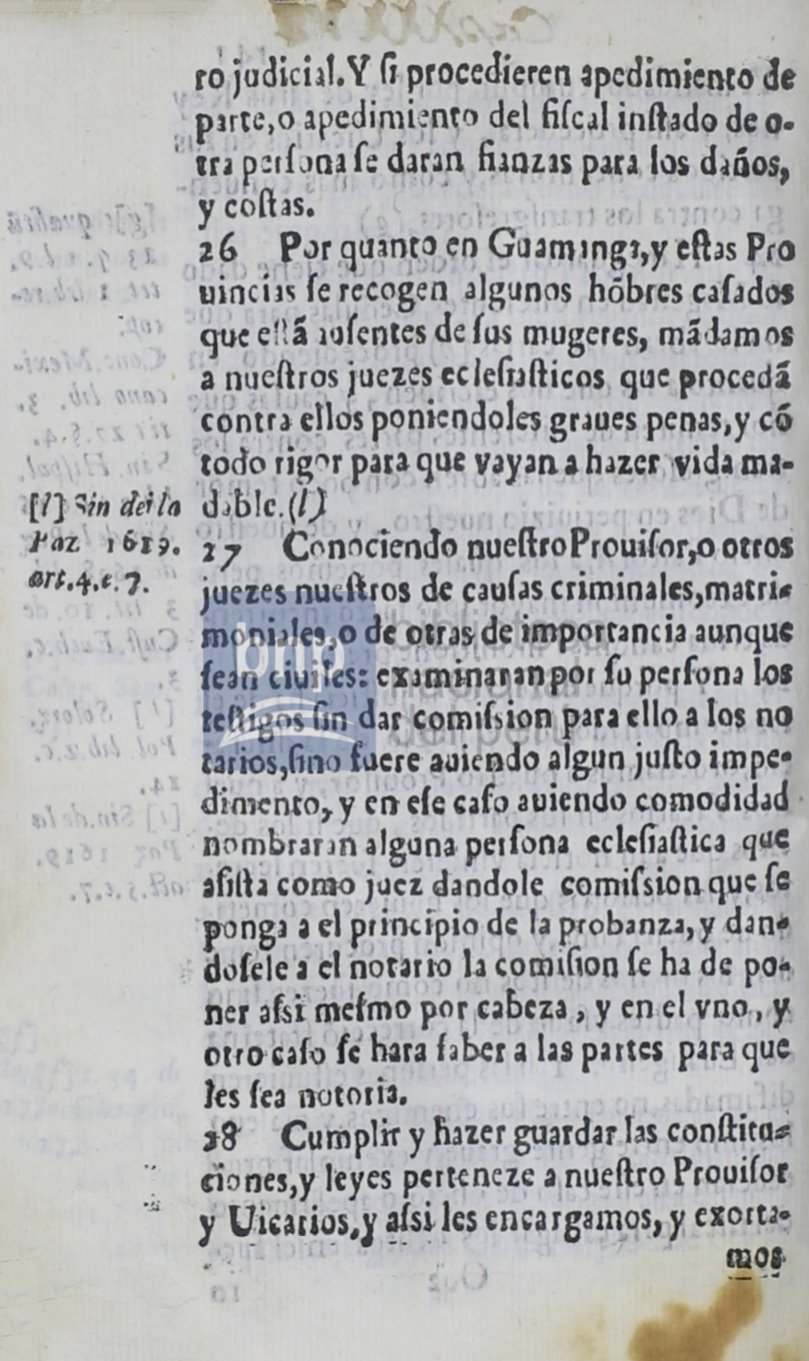 ro judicial. Y ſi procedieren apedimiento de
parte, o apedimiento del fiſcal inſtado de o-
tra perſona ſe daran fianzas para los daños,
y coſtas.
26 Por quanto en Guamanga, y eſtas Pro
uincias ſe recogen algunos hõbres caſados
que eſtã auſentes de ſus mugeres, mãdamos
a nueſtros juezes ecleſiaſticos que procedã
contra ellos poniendoles graues penas, y cõ
todo rigor para que vayan a hazer vida ma-
dable. (l)
[l] Sin de la
Paz 1619.
art. 4. c. 7.
27 Conociendo nueſtro Prouiſor, o otros
juezes nueſtros de cauſas criminales, matri-
moniales, o de otras de importancia aunque
ſean ciuiles: examinaran por ſu perſona los
teſtigos ſin dar comiſsion para ello a los no
tarios, ſino fuere auiendo algun juſto impe-
dimento, y en eſe caſo auiendo comodidad
nombraran alguna perſona ecleſiaſtica que
aſiſta como juez dandole comiſsion que ſe
ponga a el principio de la probanza, y dan-
doſele a el notario la comiſion ſe ha de po-
ner aſsi meſmo por cabeza, y en el vno, y
otro caſo ſe hara ſaber a las partes para que
les ſea notoria.
28 Cumplir y hazer guardar las conſtitu-
ciones, y leyes perteneze a nueſtro Prouiſor
y Uicarios, y aſsi les encargamos, y exorta-
mos
bnp biblioteca
nacional
del perú